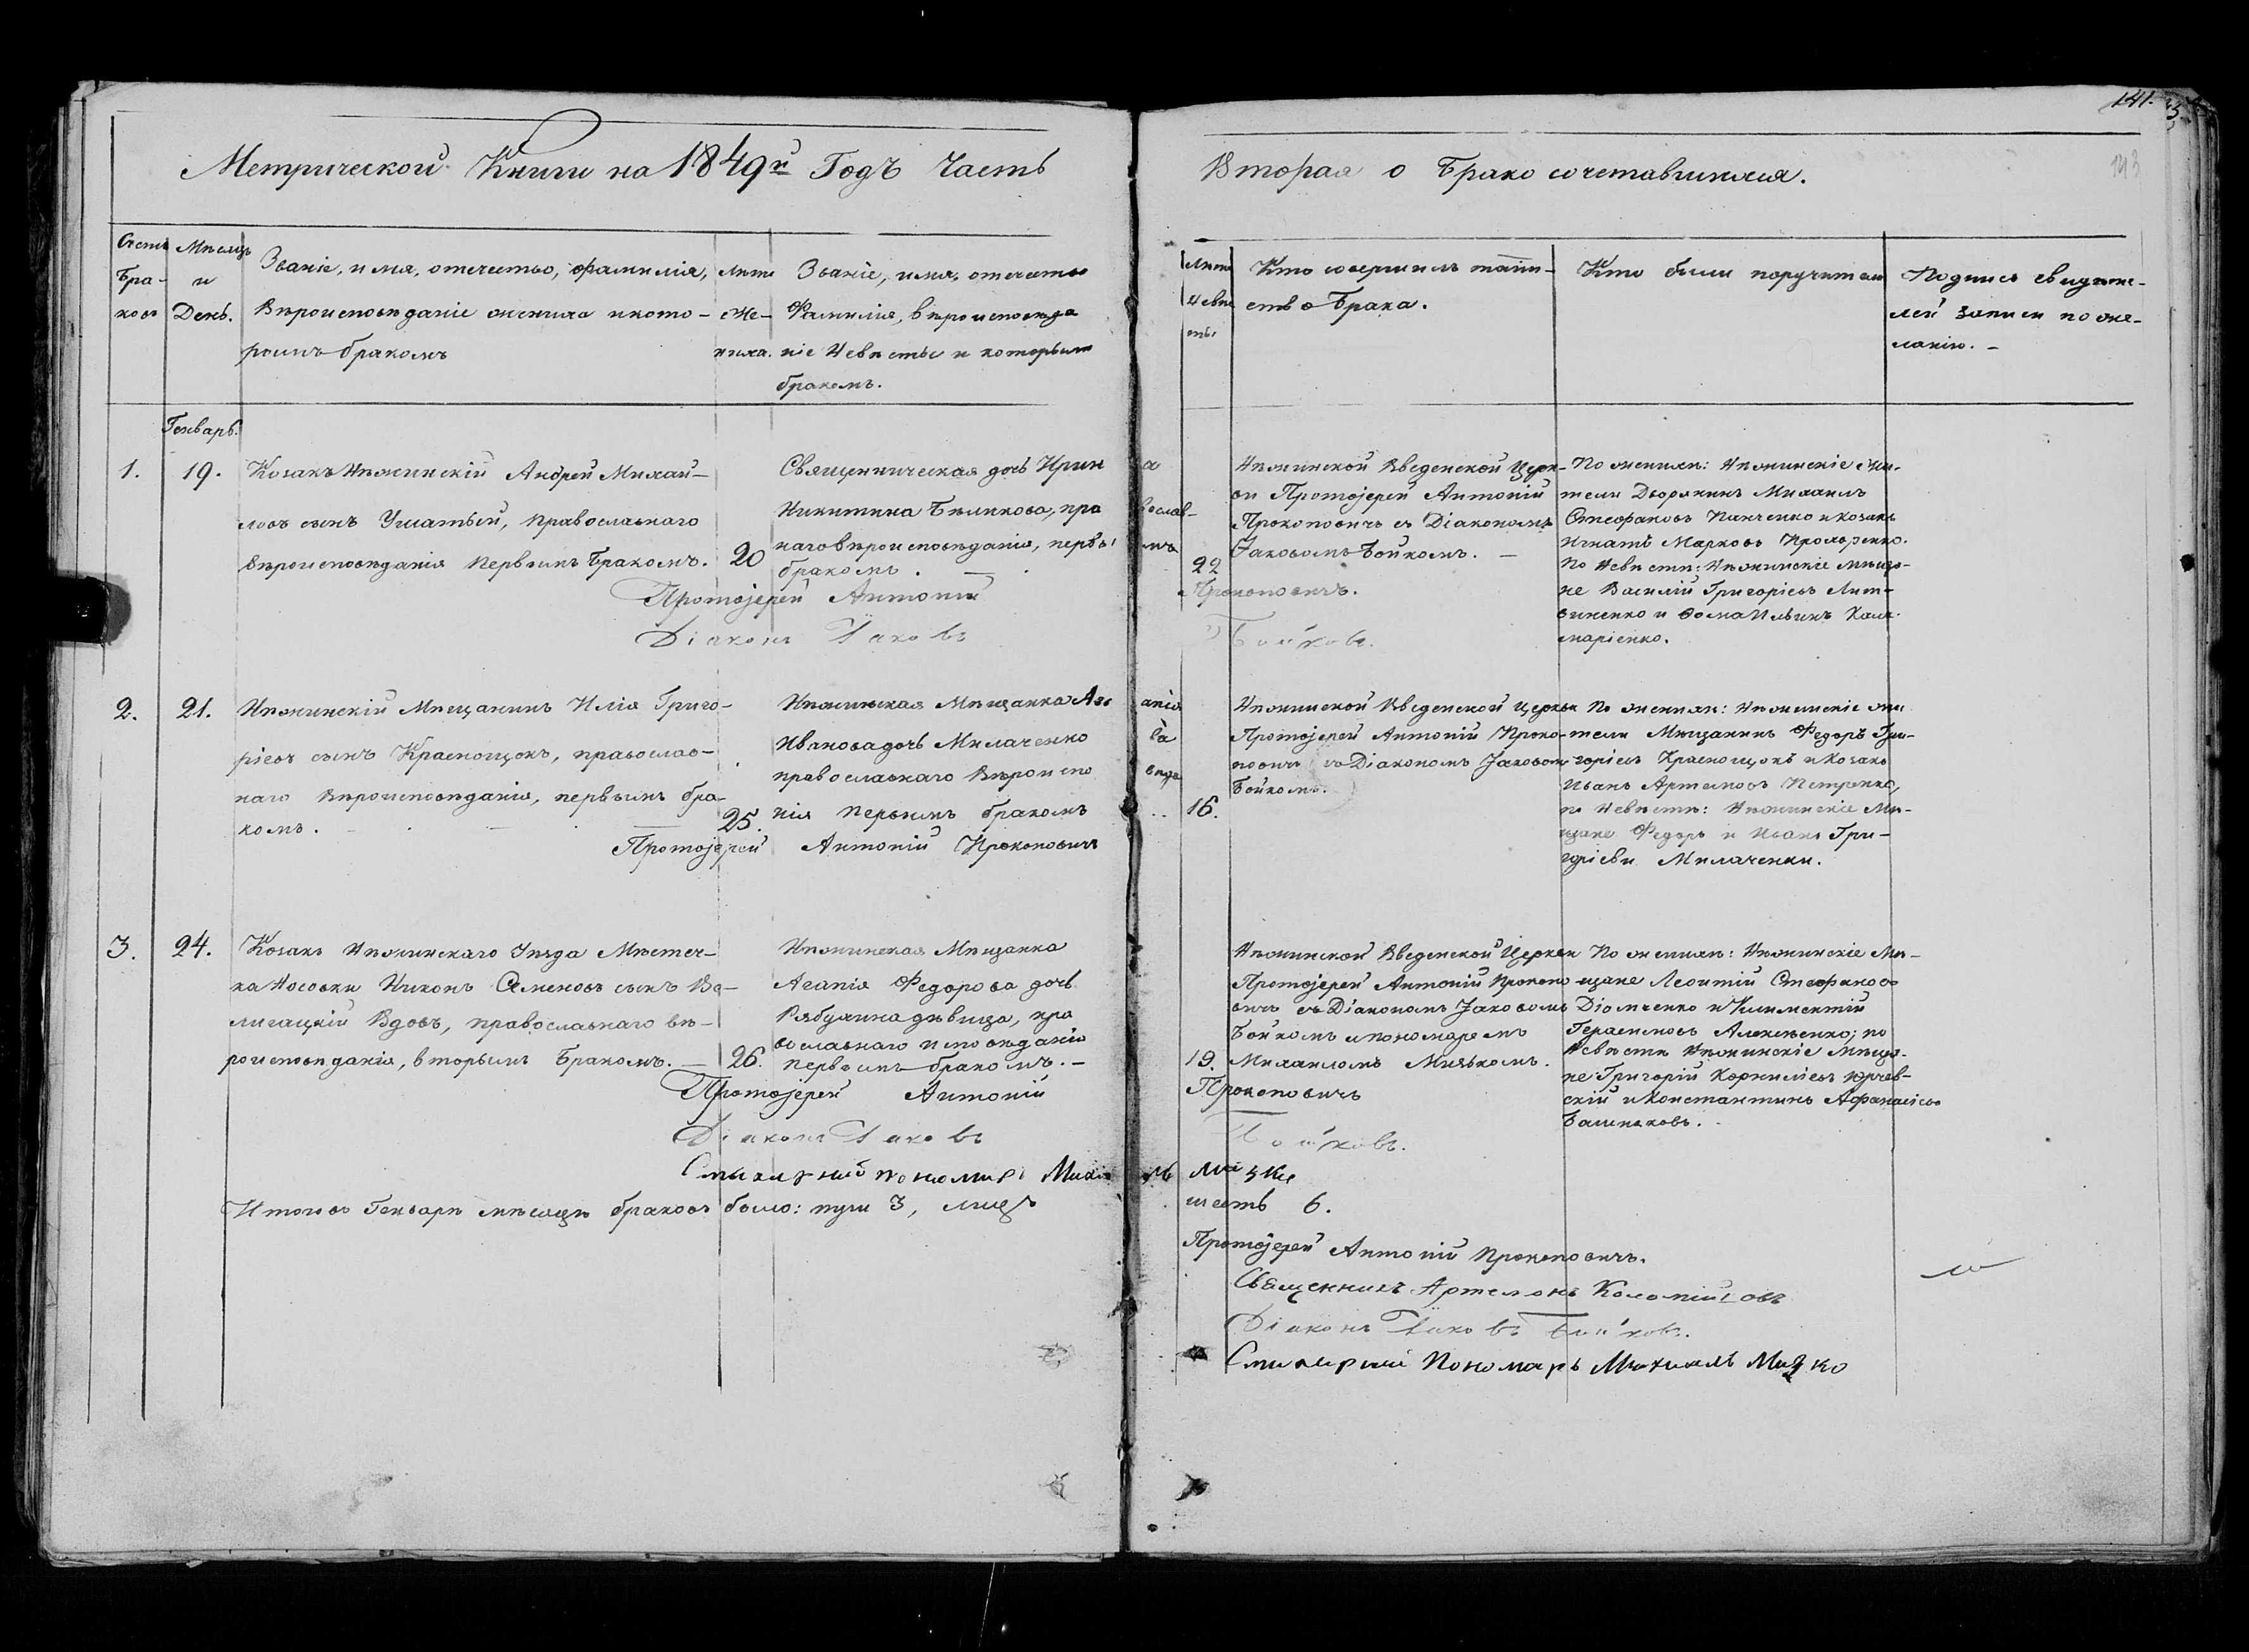 141.
Метрической Книги на 1849й Годъ Часть
Вторая о Бракосочетавшихся.
Счетъ Браковъ
Мѣсяцъ и День.
Званіе, имя, отечество, фамилія,
Вѣроисповѣданіе жениха и кото-
рымъ бракомъ
Лѣта Жениха.
Званіе, имя, отечество
Фамилія, вѣроисповѣда
ніе Невѣсты и которымъ
бракомъ.
Лѣта Невѣсты
Кто совершилъ таин-
ство Брака.
Кто были поручители
Подпись свидѣте-
лей записи по же-
ланію. –
Генварь.
1.
19.
Козакъ Нѣжинскій Андрей Михай-
ловъ сынъ Ушатый, православнаго
вѣроисповѣданія первымъ Бракомъ.
20
Священническая дочь Ирина
Никитина Бѣликова, православ-
наго вѣроисповѣданія, первымъ
бракомъ.
22
Нѣжинской Введенской Церк-
ви Протоіерей Антоній
Прокоповичъ съ Діакономъ
Іаковомъ Бойкомъ. –
По женихѣ: Нѣжинскіе жи-
тели Дворянинъ Михаилъ
Стефановъ Панченко и козакъ
Игнатъ Марковъ
По невѣстѣ: Нѣжинскіе мѣща-
не Василій Григоріевъ Лит-
виненко и Фома Ильинъ Кала-
маріенко.
Протоіерей Антоній Прокоповичъ.
Діаконъ Іаковъ Бойковъ.
2.
21.
Нѣжинскій Мѣщанинъ Илія Григо-
ріевъ сынъ Краснощокъ, православ-
наго Вѣроисповѣданія, первымъ бра-
комъ.
25.
Нѣжинская Мѣщанка Агапія
Иванова дочь Милаченкова
православнаго Вѣроисповѣда
нія первымъ бракомъ
16.
Нѣжинской Введенской Церкви
Протоіерей Антоній Проко-
повичъ съ Діакономъ Іаковомъ
Бойкомъ.
По женихѣ: Нѣжинскіе жи
тели Мѣщанинъ Федоръ Гри-
горіевъ Краснощокъ и Козакъ
Иванъ Артемовъ Петренко,
по невѣстѣ: Нѣжинскіе Мѣ-
щане Федоръ и Иванъ Гри-
горіевы Милаченки.
Протоіерей Антоній Прокоповичъ
3.
24.
Козакъ Нѣжинскаго Уѣзда Мѣстеч-
ка Носовки Никонъ Семеновъ сынъ Ве-
лигацкій Вдовъ, православнаго вѣ-
роисповѣданія, вторымъ Бракомъ. –
26.
Нѣжинская Мѣщанка
Агапія Федорова дочь
Рябухина дѣвица, пра
вославнаго исповѣданія
первымъ бракомъ. –
19.
Нѣжинской Введенской Церкви
Протоіерей Антоній Прокопо
вичъ съ Діакономъ Іаковомъ
Бойкомъ и пономаремъ
Михаиломъ Мизькомъ.
По женихѣ: Нѣжинскіе Мѣ-
щане Леонтій Стефановъ
Діомченко и Климентій
Герасимовъ Алексѣенко; по
невѣстѣ Нѣжинскіе мѣща-
не Григорій Корниліевъ Юрчев-
скій и Константинъ Афанасіевъ
Протоіерей Антоній Прокоповичъ
Діаконъ Іаковъ Бойковъ.
Стихарный пономарь Михаилъ Мизко
Итого въ Генварѣ мѣсяцѣ браковъ было: три 3, лицъ шесть 6.
Протоіерей Антоній Прокоповичъ.
Священникъ Артемонъ Коломійцовъ
Діаконъ Іаковъ Бойковъ.
Стихарный Пономарь Михаилъ Мизко